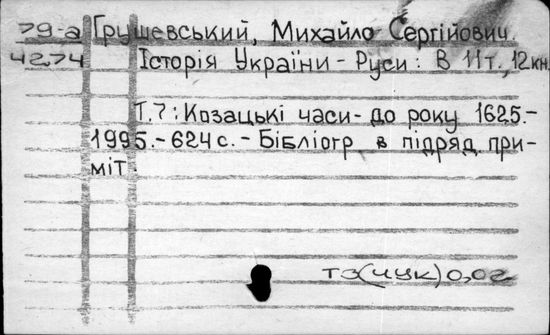 79-а Грушевський, Михайло Сергійович.
4274 Історія України - Руси: В 11т., 12 кн.
Т.7: Козацькі часи - до року 1625.-
1995.-624 с. - Бібліогр. в підряд. при-
міт.
ТЗ(4УК)0,02